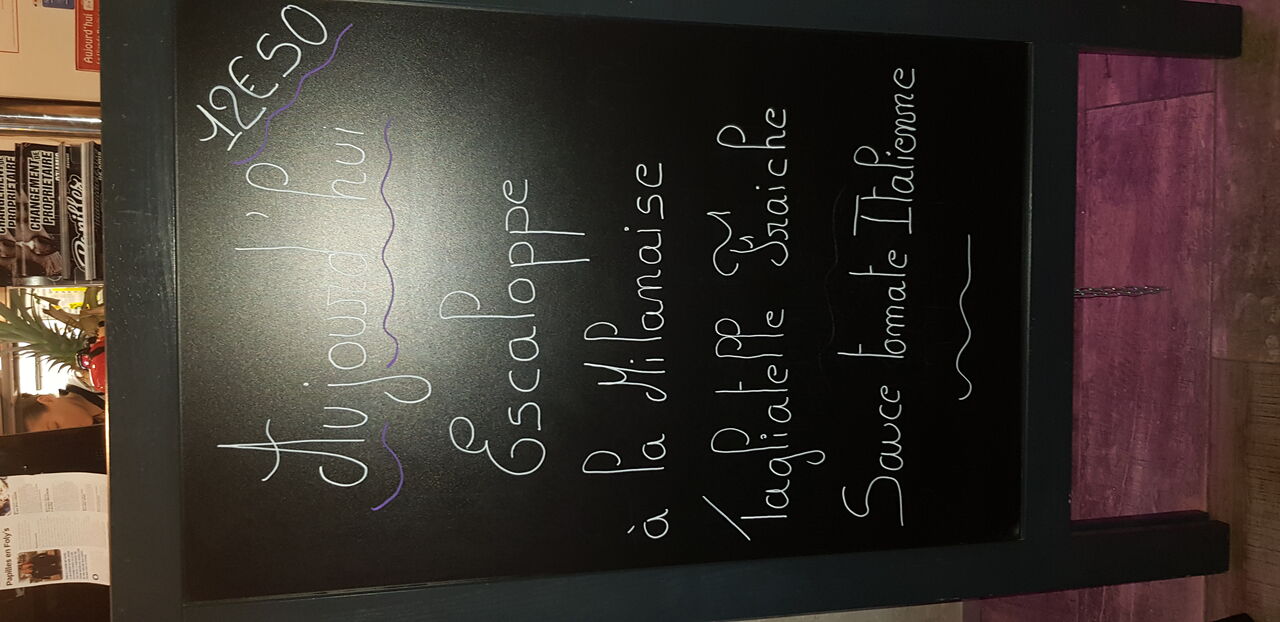 12E50
Aujourd'hui
Escaloppe
à la Milanaise
Tagliatelle Fraiche
Sauce tomate Italienne
Aujourd'hui
CHANGEMENT DE
PROPRIETAIRE
CHANGEMENT DE
PROPRIETAIRE
Papilles
Papilles en Foly's